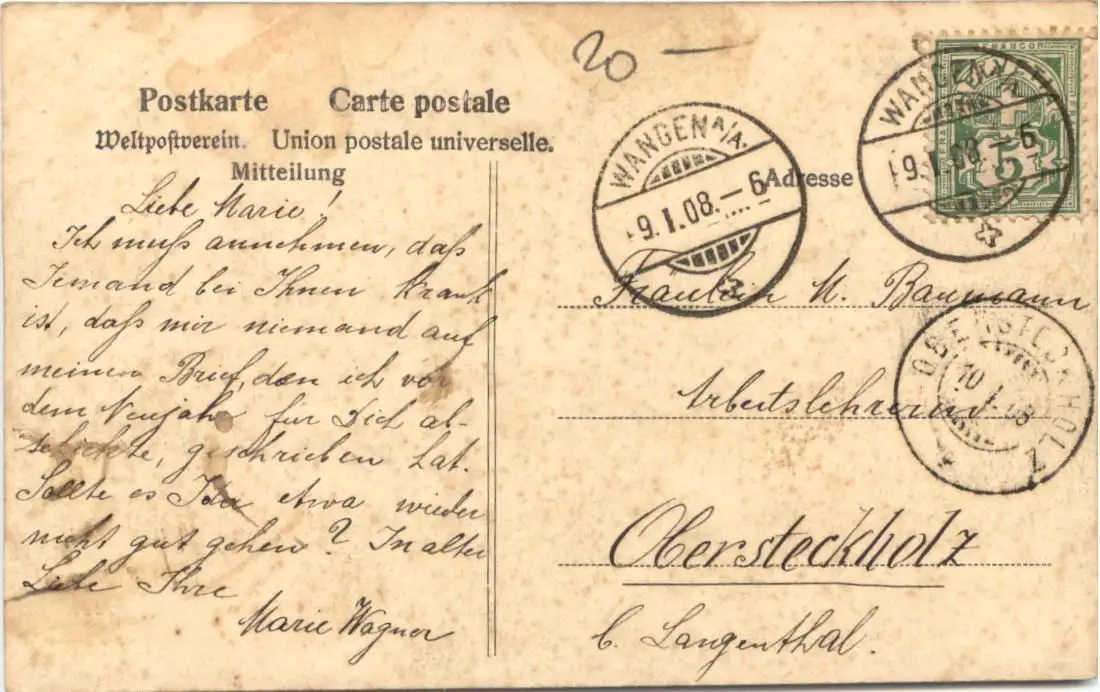 20 —
Postkarte Carte postale
Weltpostverein. Union postale universelle.
Mitteilung
Liebe Marie!
Ich muß annehmen, daß
Jemand bei Ihnen krank
ist, daß mir niemand auf
meinen Brief, den ich vor
dem Neujahr für Dich ab-
schickte, geschrieben hat.
Sollte es Ida etwa wieder
nicht gut gehen? In alter
Liebe Ihre
Marie Wagner
WANGEN A/A.
-9.I.08.-6
Adresse
WANGEN A/A.
-9.I.08.-6
FRANCO
5
Fräulein M. Baumann
Arbeitslehrerin
OBERSTECKHOLZ
10 I 08
Obersteckholz
b. Langenthal.